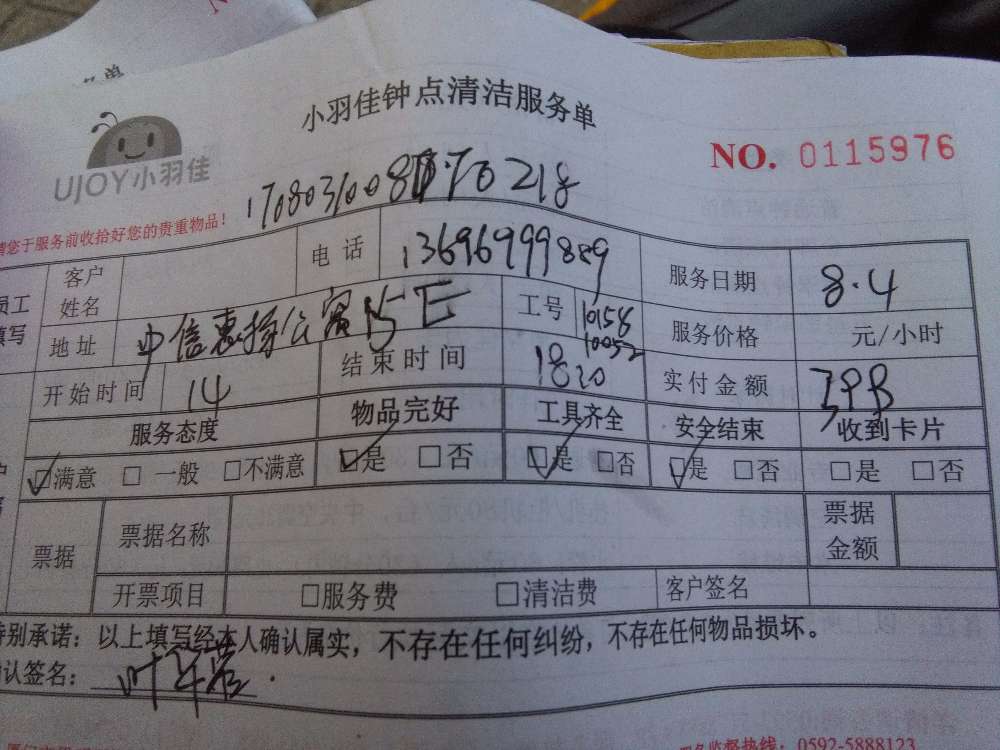 务单
小羽佳钟点清洁服务单
UJOY小羽佳
NO. 0115976
请您于服务前收拾好您的贵重物品!
员工
填写
客户
姓名
电话 13696999889
服务日期 8.4
地址 中信惠扬公寓15E
工号 10158
10052
服务价格 元/小时
开始时间 14
结束时间 1820
实付金额
服务态度 物品完好 工具齐全 安全结束 收到卡片
□满意 □一般 □不满意 □是 □否 □是 □否 □是 □否 □是 □否
票据
票据名称
票据
金额
开票项目 □服务费 □清洁费 客户签名
特别承诺:以上填写经本人确认属实,不存在任何纠纷,不存在任何物品损坏。
确认签名:
服务监督热线:0592-5888123